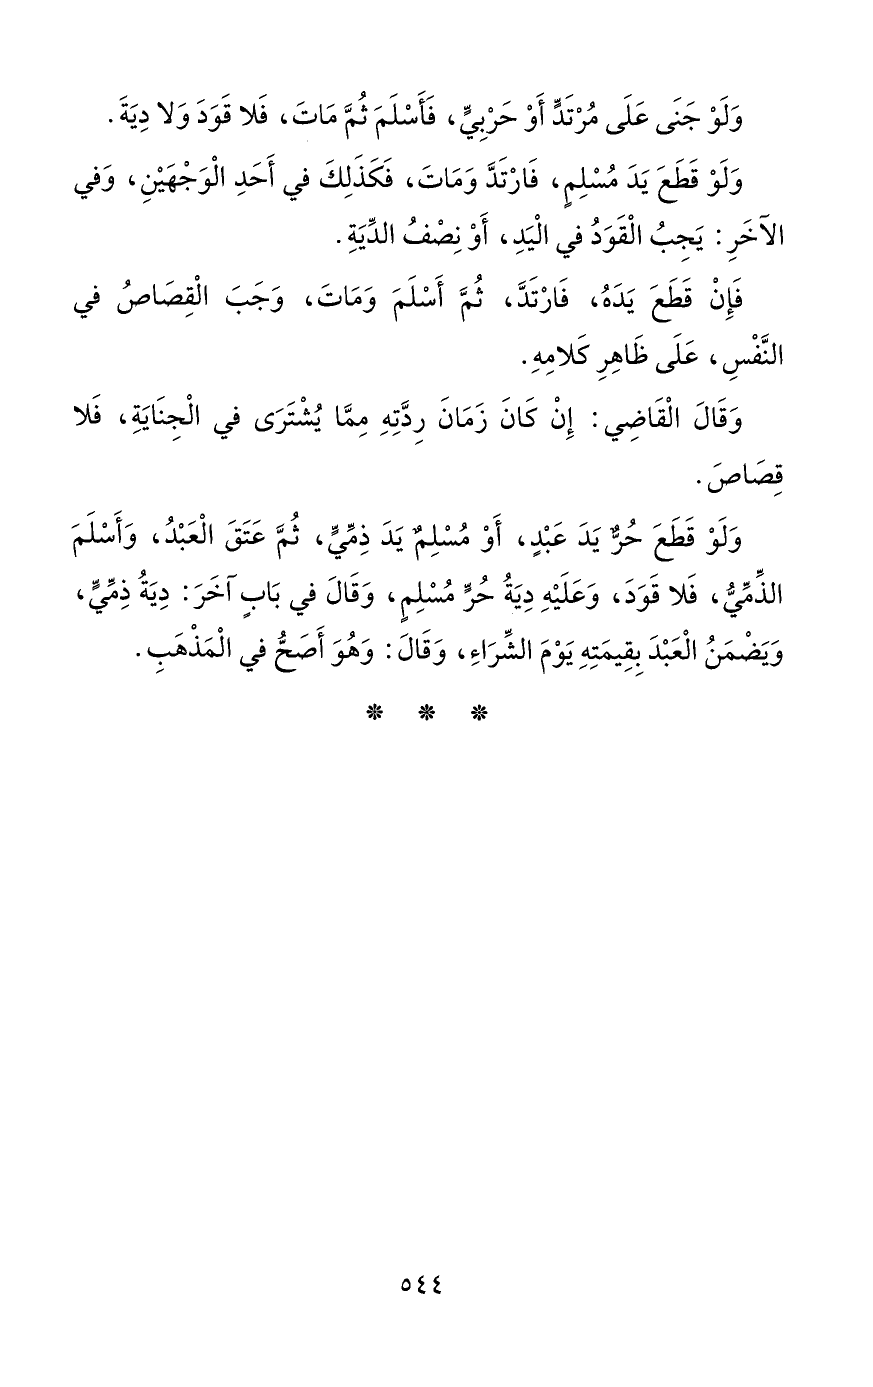 وَلَوْ جَنَى عَلَى مُرْتَدٍّ أَوْ حَرْبِيٍّ، فَأَسْلَمَ ثُمَّ مَاتَ، فَلا قَوَدَ وَلا دِيَةَ.
وَلَوْ قَطَعَ يَدَ مُسْلِمٍ، فَارْتَدَّ وَمَاتَ، فَكَذَلِكَ في أَحَدِ الْوَجْهَيْنِ، وَفي
الآخَرِ: يَجِبُ الْقَوَدُ في الْيَدِ، أَوْ نِصْفُ الدِّيَةِ.
فَإِنْ قَطَعَ يَدَهُ، فَارْتَدَّ، ثُمَّ أَسْلَمَ وَمَاتَ، وَجَبَ الْقِصَاصُ في
النَّفْسِ، عَلَى ظَاهِرِ كَلامِهِ.
وَقَالَ الْقَاضِي: إِنْ كَانَ زَمَانَ رِدَّتِهِ مِمَّا يُشْتَرَى في الْجِنَايَةِ، فَلا
قِصَاصَ.
وَلَوْ قَطَعَ حُرٌّ يَدَ عَبْدٍ، أَوْ مُسْلِمٌ يَدَ ذِمِّيٍّ، ثُمَّ عَتَقَ الْعَبْدُ، وَأَسْلَمَ
الذِّمِّيُّ، فَلا قَوَدَ، وَعَلَيْهِ دِيَةُ حُرٍّ مُسْلِمٍ، وَقَالَ في بَابٍ آخَرَ: دِيَةُ ذِمِّيٍّ،
وَيَضْمَنُ الْعَبْدَ بِقِيمَتِهِ يَوْمَ الشِّرَاءِ، وَقَالَ: وَهُوَ أَصَحُّ في الْمَذْهَبِ.
* * *
٥٤٤